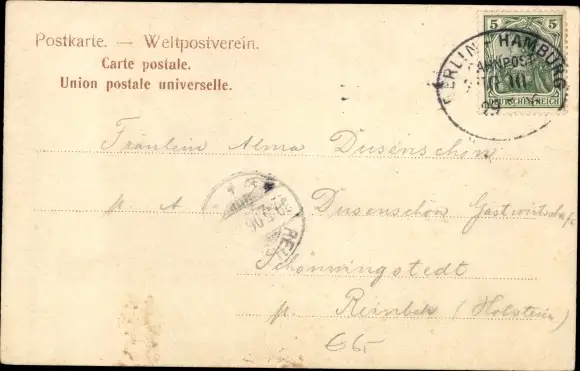 Postkarte. — Weltpostverein.
Carte postale.
Union postale universelle.
5 5
DEUTSCHES REICH
BERLIN - HAMBURG
BAHNPOST
Fräulein Alma Dusenschön
p. A Dusenschön Gastwirtschaft
Schönningstedt
p. Reinbek (Holstein)